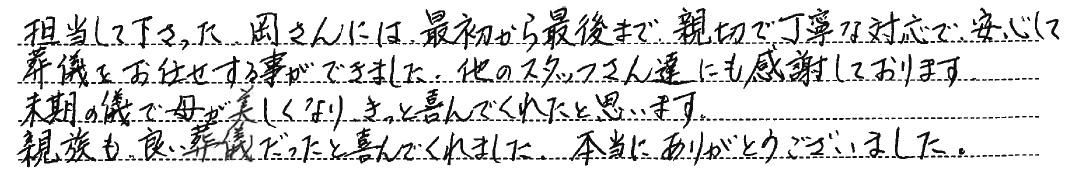 担当して下さった、岡さんには、最初から最後まで、親切で丁寧な対応で、安心して
葬儀をお任せする事ができました。他のスタッフさん達にも感謝しております。
末期の儀で母が美しくなり、きっと喜んでくれたと思います。
親族も、良い葬儀だったと喜んでくれました。本当にありがとうございました。